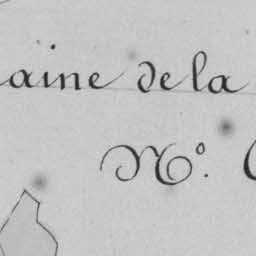 aine de la
Nº.